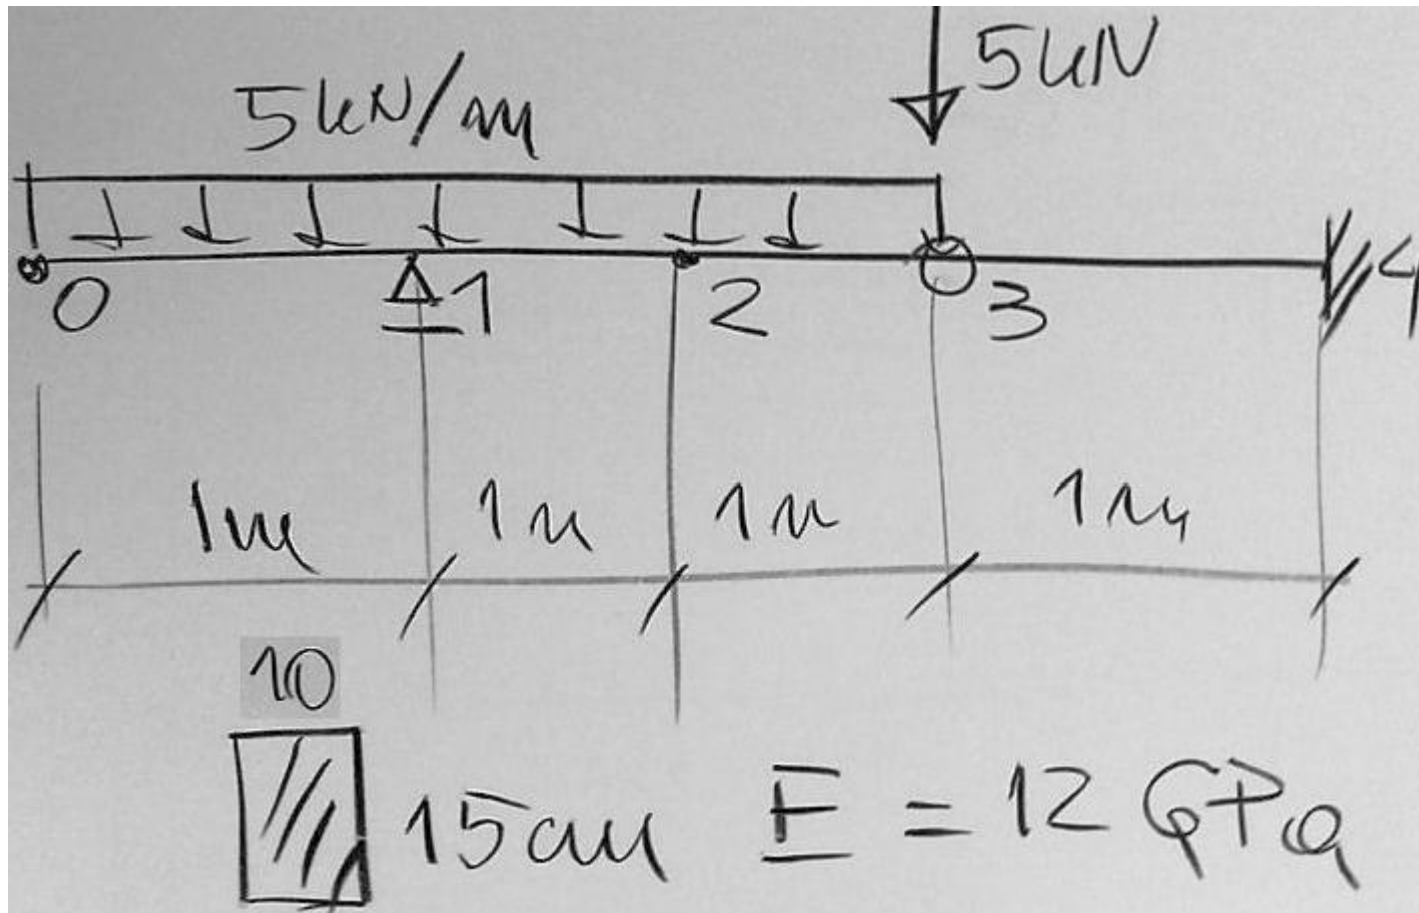 5kN
5kN/m
0 1 2 3 4
1m 1m 1m 1m
10
15cm E = 12 GPa